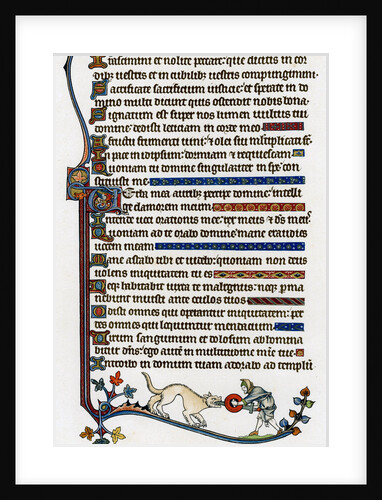 Irascimini et nolite peccare: que dicitis in cor
dibus uestris et in cubilibus uestris compungimini.
Sacrificate sacrificium iusticie: et sperate in do
mino multi dicunt quis ostendit nobis bona.
Signatum est super nos lumen uultus tui
domine: dedisti leticiam in corde meo
A fructu frumenti uini: et olei sui multiplicati st.
In pace in idipsum: dormiam et requiescam
Quoniam tu domine singulariter in spe: con
stituisti me
Verba mea auribus percipe domine: intelli
ge clamorem meum
Intende uoci orationis mee: rex meus et ds meus
Quoniam ad te orabo domine: mane exaudies
uocem meam
Mane astabo tibi et uidebo: quoniam non deus
uolens iniquitatem tu es
Neqz habitabit iuxta te malignus: neqz perma
nebunt iniusti ante oculos tuos
Odisti omnes qui operantur iniquitatem: per
des omnes qui loquuntur mendacium
Uirum sanguinum et dolosum abhomina
bitur dns: ego autem in multitudine mie tue
Introibo in domum tuam adorabo ad templum